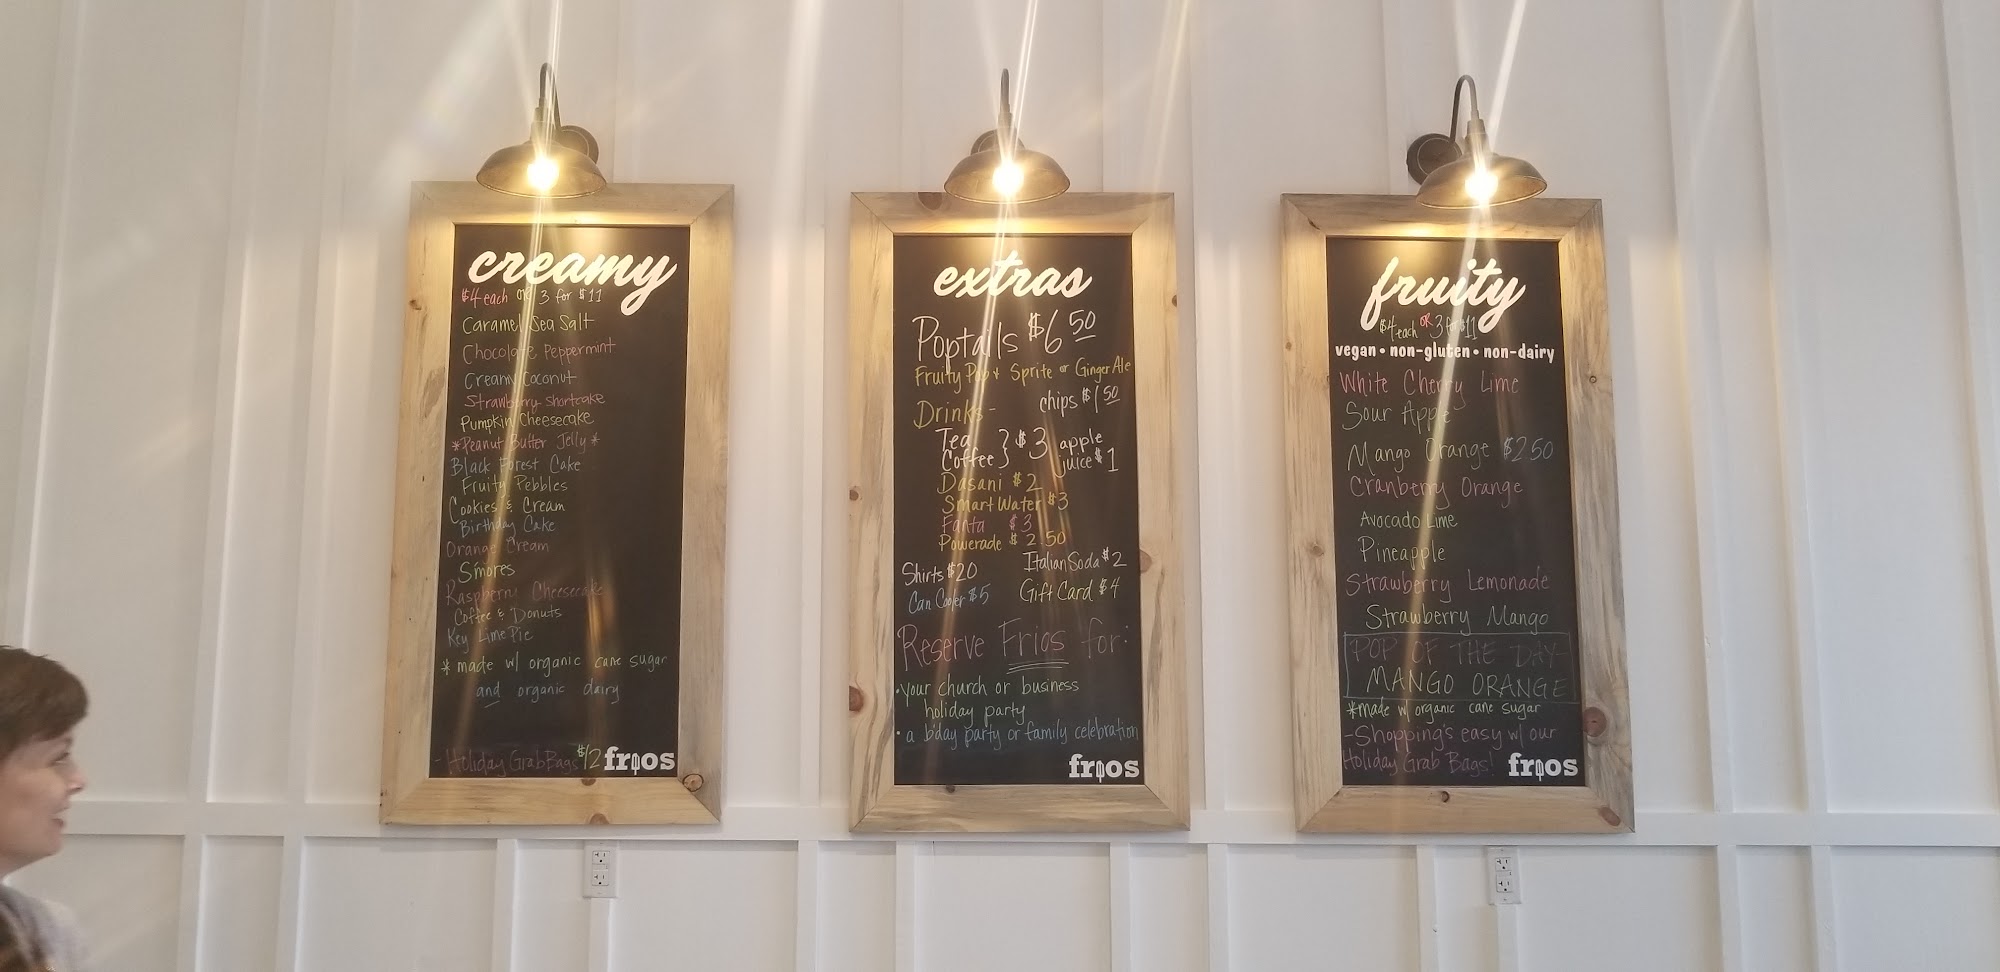 creamy
$4 each or 3 for $11
Caramel Sea Salt
Chocolate Peppermint
Creamy Coconut
Strawberry Shortcake
Pumpkin Cheesecake
*Peanut Butter Jelly*
Black Forest Cake
Fruity Pebbles
Cookies & Cream
Birthday Cake
Orange Cream
S'mores
Raspberry Cheesecake
Coffee & Donuts
Key Lime Pie
* made w/ organic cane sugar
and organic dairy
- Holiday Grab Bags $12
frios
extras
Poptails $6 50
Fruity Pop + Sprite or Ginger Ale
Drinks - chips $1 50
Tea
Coffee } $3
apple
juice $1
Dasani $2
Smart Water $3
Fanta $3
Powerade $2.50
Shirts $20 Italian Soda $2
Can Cooler $5 Gift Card $4
Reserve Frios for:
• your church or business
holiday party
• a b'day party or family celebration
frios
fruity
$4 each OR 3 for $11
vegan • non-gluten • non-dairy
White Cherry Lime
Sour Apple
Mango Orange $2.50
Cranberry Orange
Avocado Lime
Pineapple
Strawberry Lemonade
Strawberry Mango
POP OF THE DAY-
MANGO ORANGE
*made w/ organic cane sugar
- Shopping's easy w/ our
Holiday Grab Bags!
frios